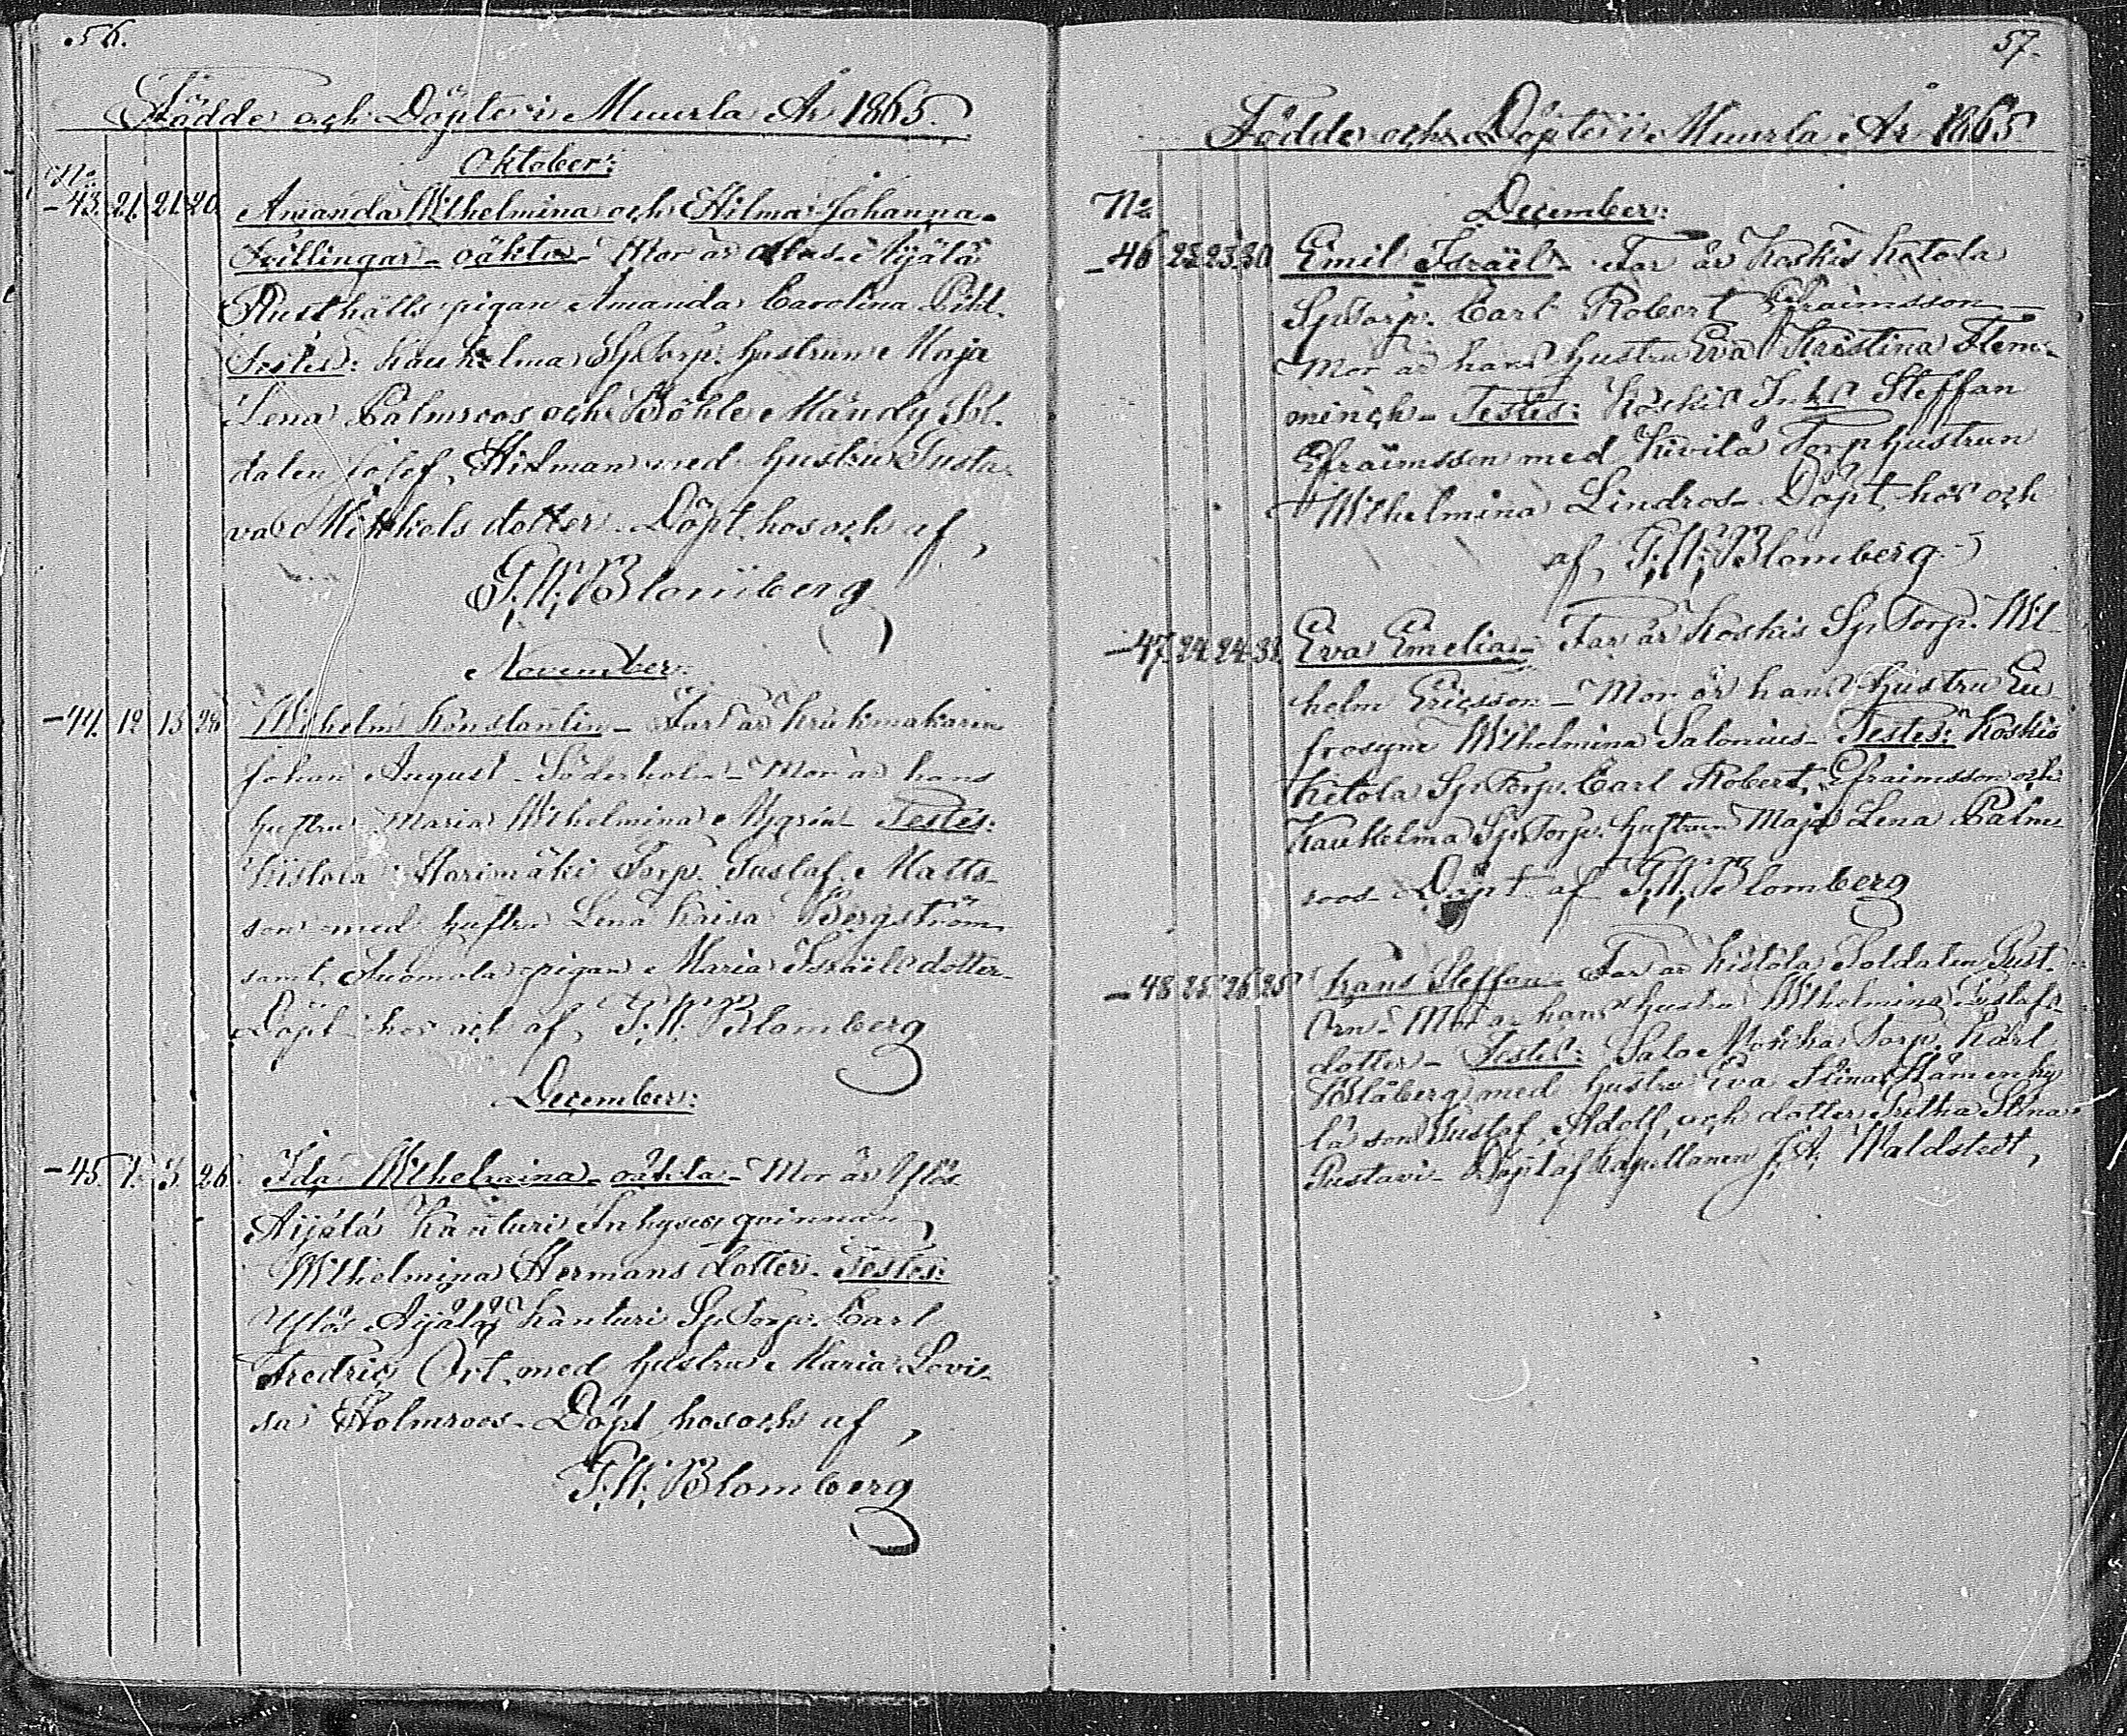 56.
Födde och Döpte i Muurla År 1865.
Oktober:
No
-43. 21. 21. 20. Amanda Wilhelmina och Hilma Johanna
Tvillingar - oäkta - Mor är Alas Äijälä
Rusthålls pigan Amanda Carolina Pihl.
Testes: Kaukelma Sp Torp. hustrun Maja
Lena Palmroos och Böhle Mändy Sol-
daten Josef Hilman med hustru Gusta-
va Mikkels dotter. Döpt hos och af
F. W. Blomberg
November.
-44. 12 13 28 Wilhelm Konstantin - Far är Krukmakaren
Johan August Söderholm - Mor är hans
hustru Maria Wilhelmina Testes:
Kistola Harimäki Torp. Gustaf Matts-
son med hustru Lena Kaisa Bergström
samt Suomela pigan Maria Israels dotter -
Döpt hos och af F. W. Blomberg
December:
-45. 1. 3. 26. Ida Wilhelmina - oäkta - Mor är Ylös
Äijälä Känturi Inhyses qvinnan
Wilhelmina Hermans dotter. Testes:
Ylös Äijälä Känturi Sp Torp. Carl
Fredric Ort med hustru Maria Lovi-
sa Holmroos - Döpt hos och af
F. W. Blomberg
57.
Födde och Döpte i Muurla År 1865
No December:
-46 23 23 30 Emil Israël - Far är Koskis Ketola
Sp Torp. Carl Robert Efraimsson -
Mor är hans hustru Eva Kristina Flem-
minch - Testes: Koskis Inhs Steffan
Efraimsson med Kivilä Torp hustrun
Wilhelmina Lindros - Döpt hos och
af F. W. Blomberg
-47. 24. 24. 32 Eva Emelia - Far är Koskis Sp Torp. Wil-
helm Ericsson - Mor är hans hustru Eu-
frosyne Wilhelmina Salonius - Testes: Koskis
Ketola Sp Torp. Carl Robert Efraimsson och
Kaukelma Sp Torp. hustrun Maja Lena Palm-
roos - Döpt af F. W. Blomberg
-48 25. 26. 25 Frans Steffan - Far är Kistola Soldaten Gust.
Orn - Mor är hans hustru Wilhelmina Gustafs-
dotter - Testes: Salo Torp. Karl
Blåberg med hustru Eva Stina
lä son Gustaf Adolf och dotter Stina
Gustavi - Döpt af Kapellanen J. A. Waldstedt